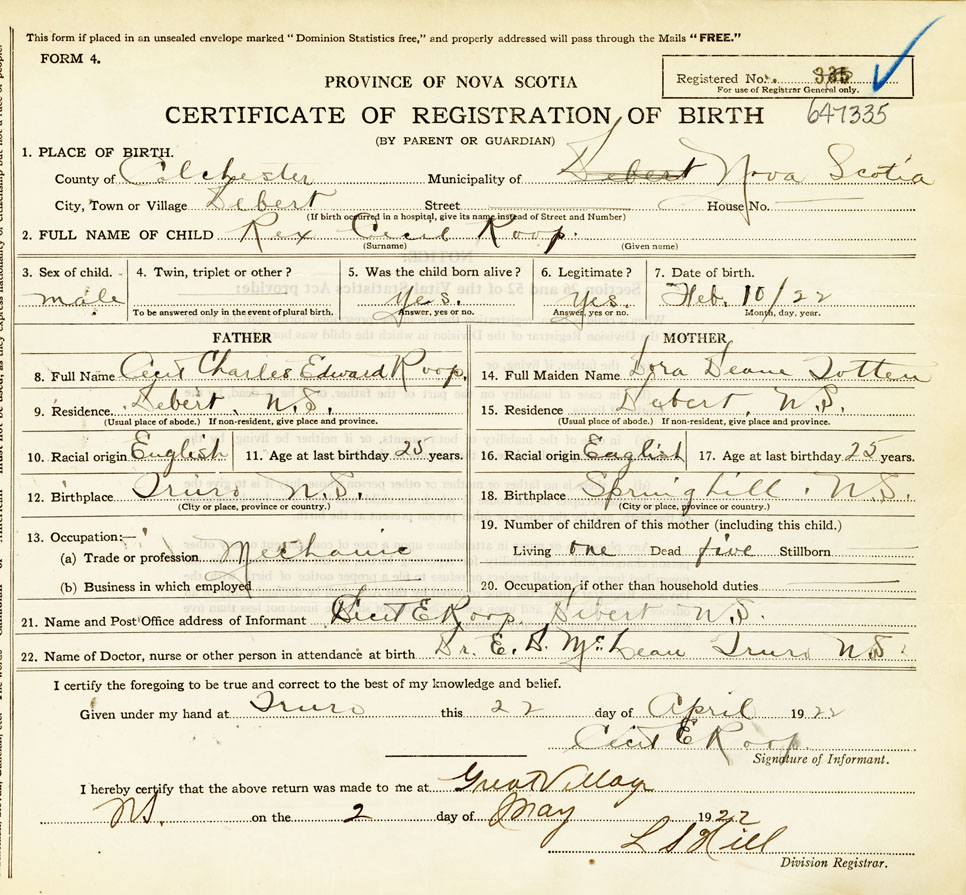 This form if placed in an unsealed envelope marked "Dominion Statistics free," and properly addressed will pass through the Mails "FREE."
FORM 4.
Registered No. 335
For use of Registrar General only.
PROVINCE OF NOVA SCOTIA
647335
CERTIFICATE OF REGISTRATION OF BIRTH
(BY PARENT OR GUARDIAN)
1. PLACE OF BIRTH.
County of Colchester Municipality of Debert Nova Scotia
City, Town or Village Debert Street House No.
(If birth occurred in a hospital, give its name instead of Street and Number)
2. FULL NAME OF CHILD Rex Cecil Roop.
(Surname) (Given name)
3. Sex of child. 4. Twin, triplet or other? 5. Was the child born alive? 6. Legitimate? 7. Date of birth.
male Yes. Yes. Feb. 10/22
To be answered only in the event of plural birth. Answer, yes or no. Answer, yes or no. Month, day, year.
FATHER MOTHER
8. Full Name Cecil Charles Edward Roop. 14. Full Maiden Name Dora Deane Totten
9. Residence Debert, N.S. 15. Residence Debert, N.S.
(Usual place of abode.) If non-resident, give place and province. (Usual place of abode.) If non-resident, give place and province.
10. Racial origin English 11. Age at last birthday 25 years. 16. Racial origin English 17. Age at last birthday 25 years.
12. Birthplace Truro N.S. 18. Birthplace Springhill. N.S.
(City or place, province or country.) (City or place, province or country.)
13. Occupation:— 19. Number of children of this mother (including this child.)
(a) Trade or profession Mechanic Living one Dead five Stillborn
(b) Business in which employed 20. Occupation, if other than household duties
21. Name and Post Office address of Informant Cecil E Roop. Debert N.S.
22. Name of Doctor, nurse or other person in attendance at birth Dr. E. D. McLean Truro N.S.
I certify the foregoing to be true and correct to the best of my knowledge and belief.
Given under my hand at Truro this 22 day of April 1922
Cecil E Roop.
Signature of Informant.
I hereby certify that the above return was made to me at Great Village
N.S. on the 2 day of May 1922
L S Hill
Division Registrar.